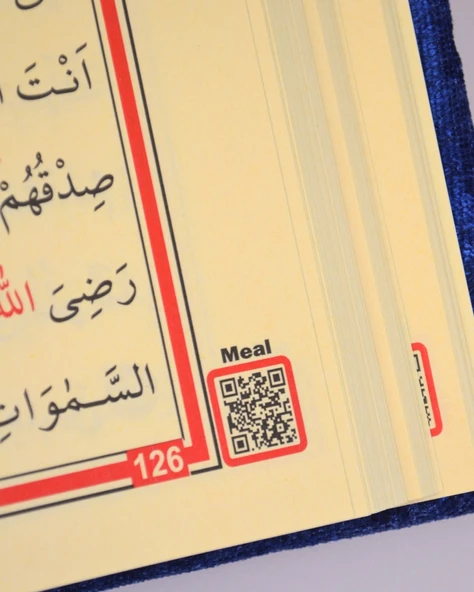 اَنْتَ
صِدْقُهُمْ
رَضِىَ اللّٰهُ
السَّمٰوَاتِ
Meal
126